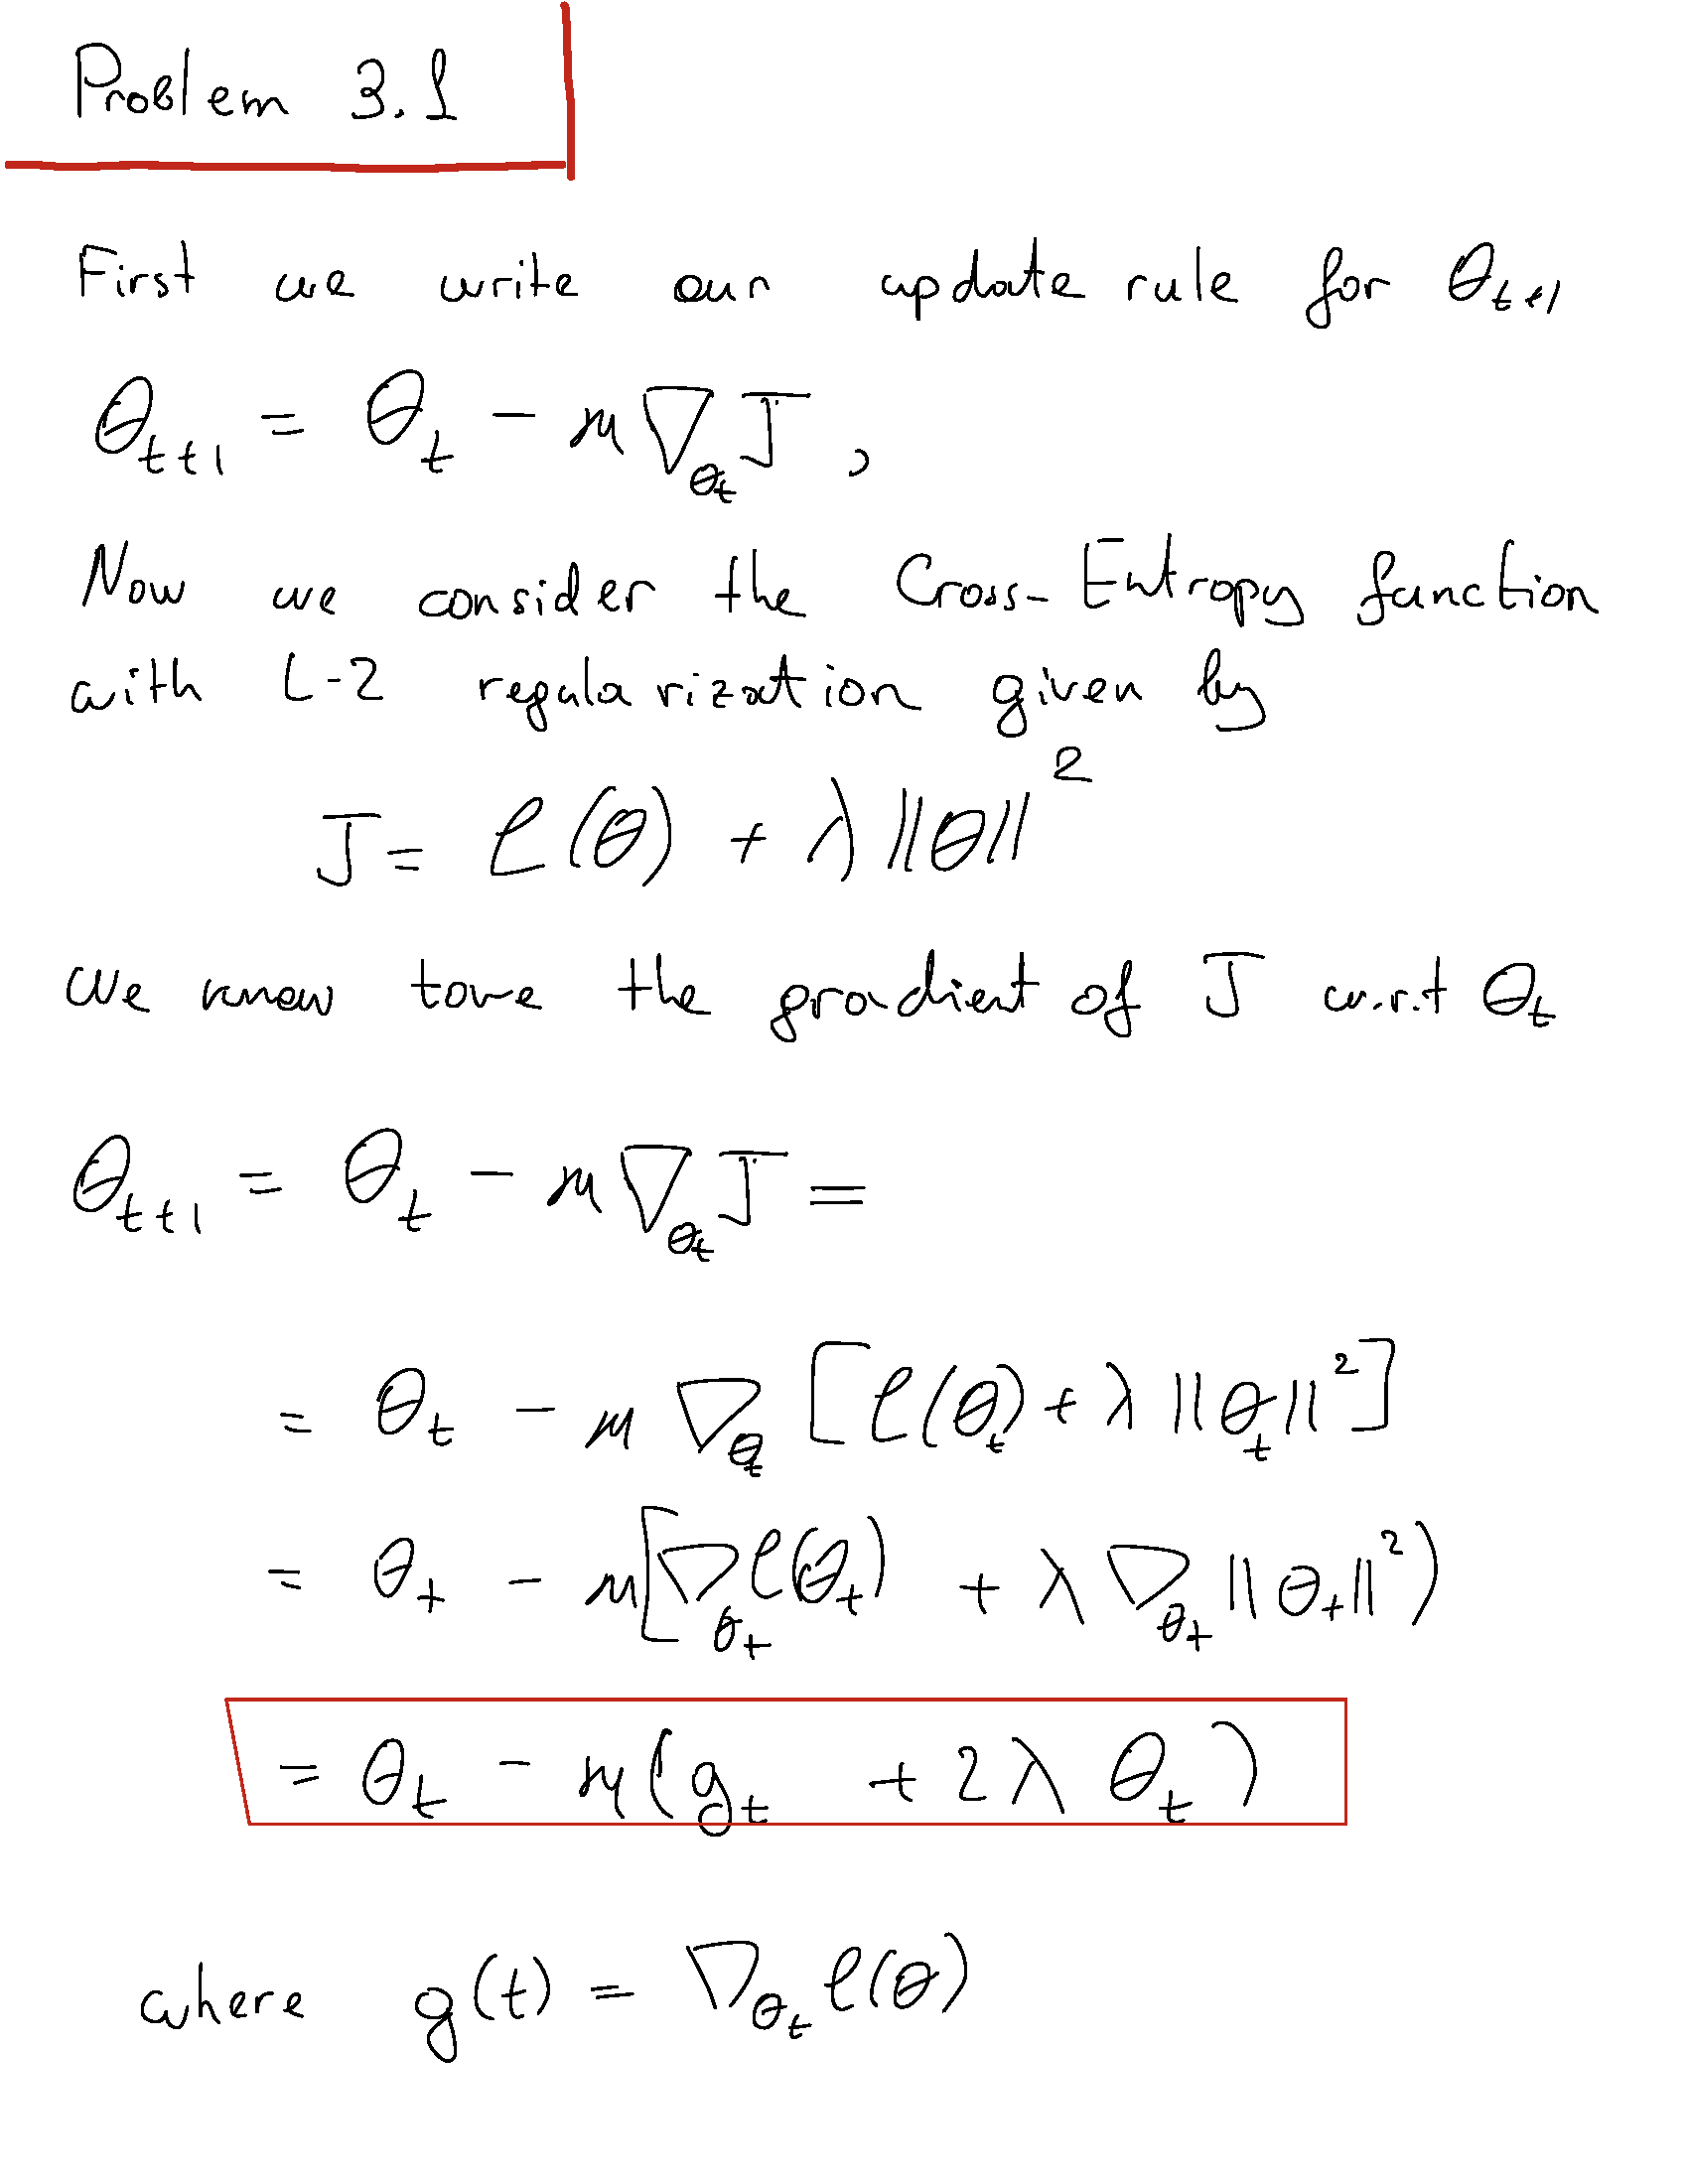 Problem 3.1
First we write our update rule for θ_{t+1}
θ_{t+1} = θ_t - η ∇_{θ_t} J ,
Now we consider the Cross-Entropy function
with L-2 regularization given by
J = ℓ(θ) + λ ||θ||²
we know the gradient of J w.r.t θ_t
θ_{t+1} = θ_t - η ∇_{θ_t} J =
= θ_t - η ∇_{θ_t} [ℓ(θ_t) + λ ||θ_t||²]
= θ_t - η[∇_{θ_t} ℓ(θ_t) + λ ∇_{θ_t} ||θ_t||²)
= θ_t - η(g_t + 2λ θ_t)
where g(t) = ∇_{θ_t} ℓ(θ)